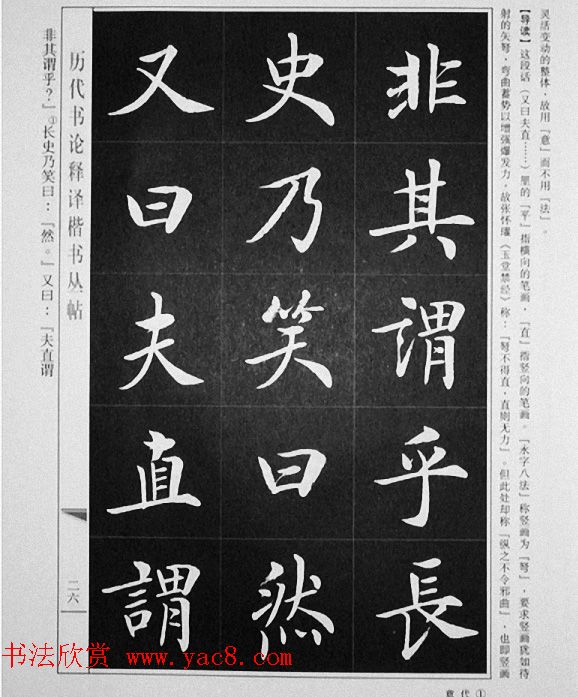 灵活变动的整体，故用『意』而不用『法』。
【导读】这段话（又曰夫直……）里的『平』指横向的笔画，『直』指竖向的笔画。『永字八法』称竖画为『弩』，要求竖画犹如待
射的矢弩，弯曲蓄势以增强爆发力，故张怀瓘（玉堂禁经）称：『弩不得直，直则无力』。但此处却称『纵之不令邪曲』，也即竖画
非其謂乎長
史乃笑曰然
又曰夫直謂
历代书论释译楷书丛帖
二六
非其谓乎？』①长史乃笑曰：『然。』又曰：『夫直谓
书法欣赏 www.yac8.com